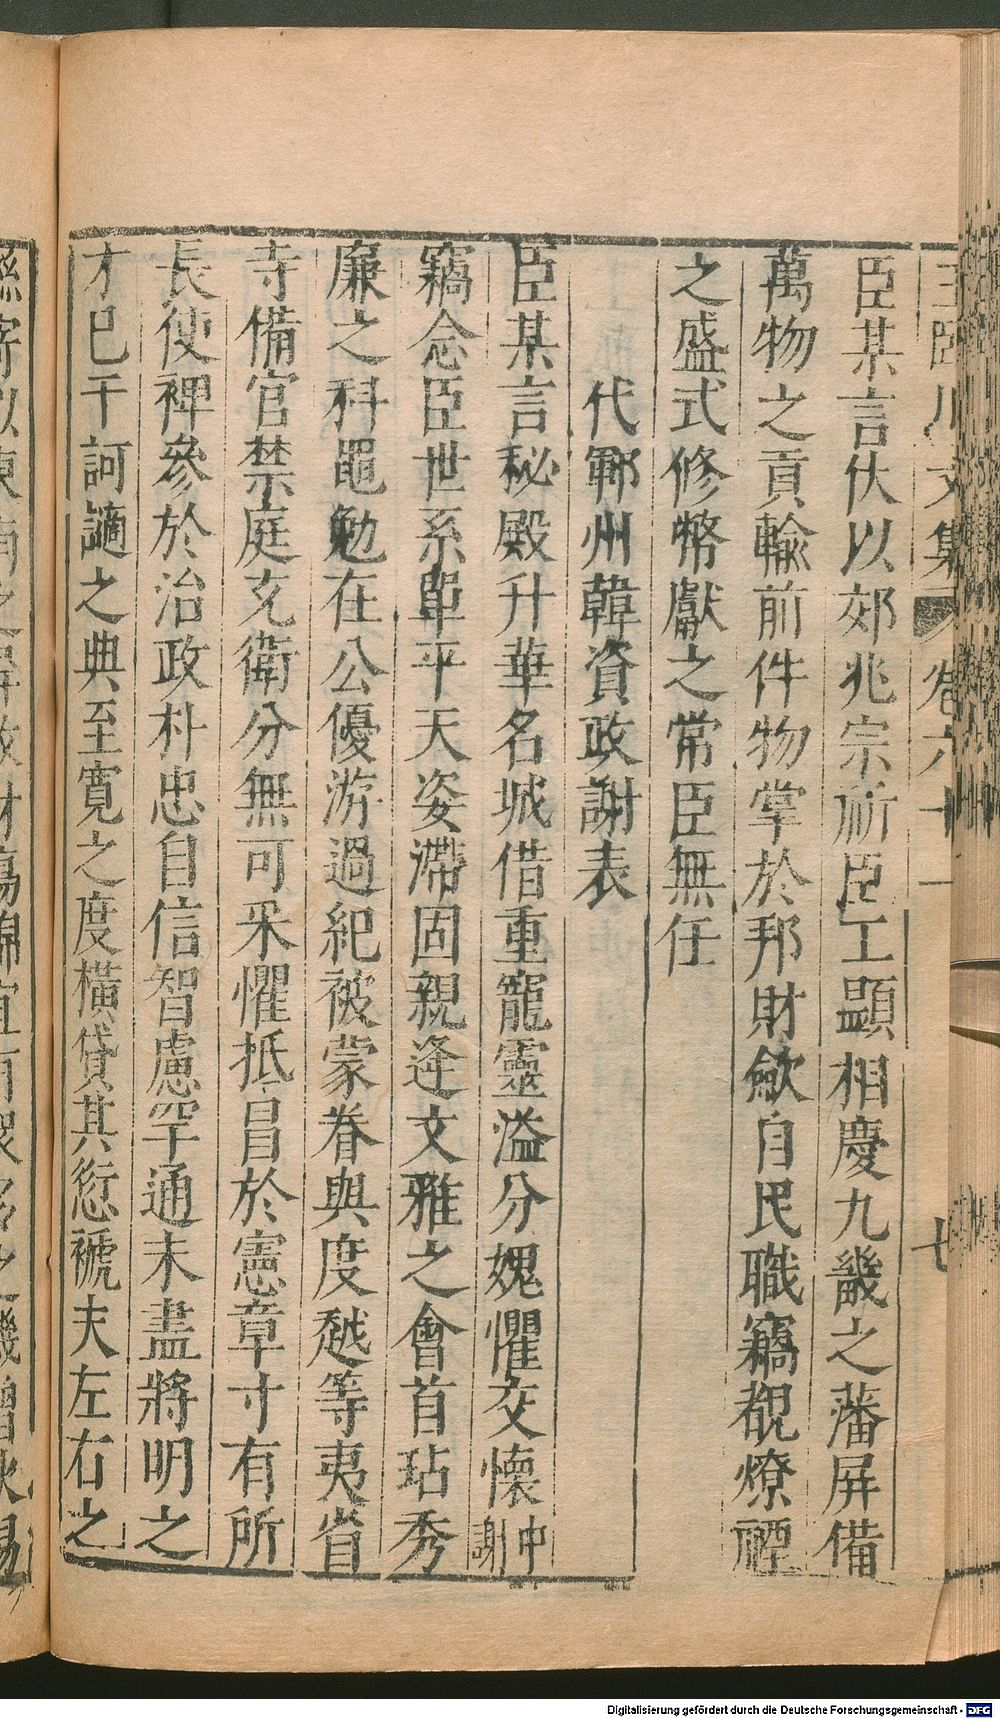 王臨川文集 卷六十一 七
臣某言伏以郊兆宗祈臣工顯相慶九畿之藩屏備
萬物之貢輸前件物掌於邦財斂自民職竊覩燎禋
之盛式修幣獻之常臣無任
代鄆州韓資政謝表
臣某言秘殿升華名城借重寵靈溢分媿懼交懷中謝
竊念臣世系單平天姿滯固親逢文雅之會首玷秀
廉之科黽勉在公優游過紀被蒙眷與度越等夷省
寺備官禁庭充衛分無可采懼抵冒於憲章寸有所
長使裨參於治政朴忠自信智慮罕通未盡將明之
才已干訶讁之典至寬之度橫貸其愆褫夫左右之
Digitalisierung gefördert durch die Deutsche Forschungsgemeinschaft - DFG